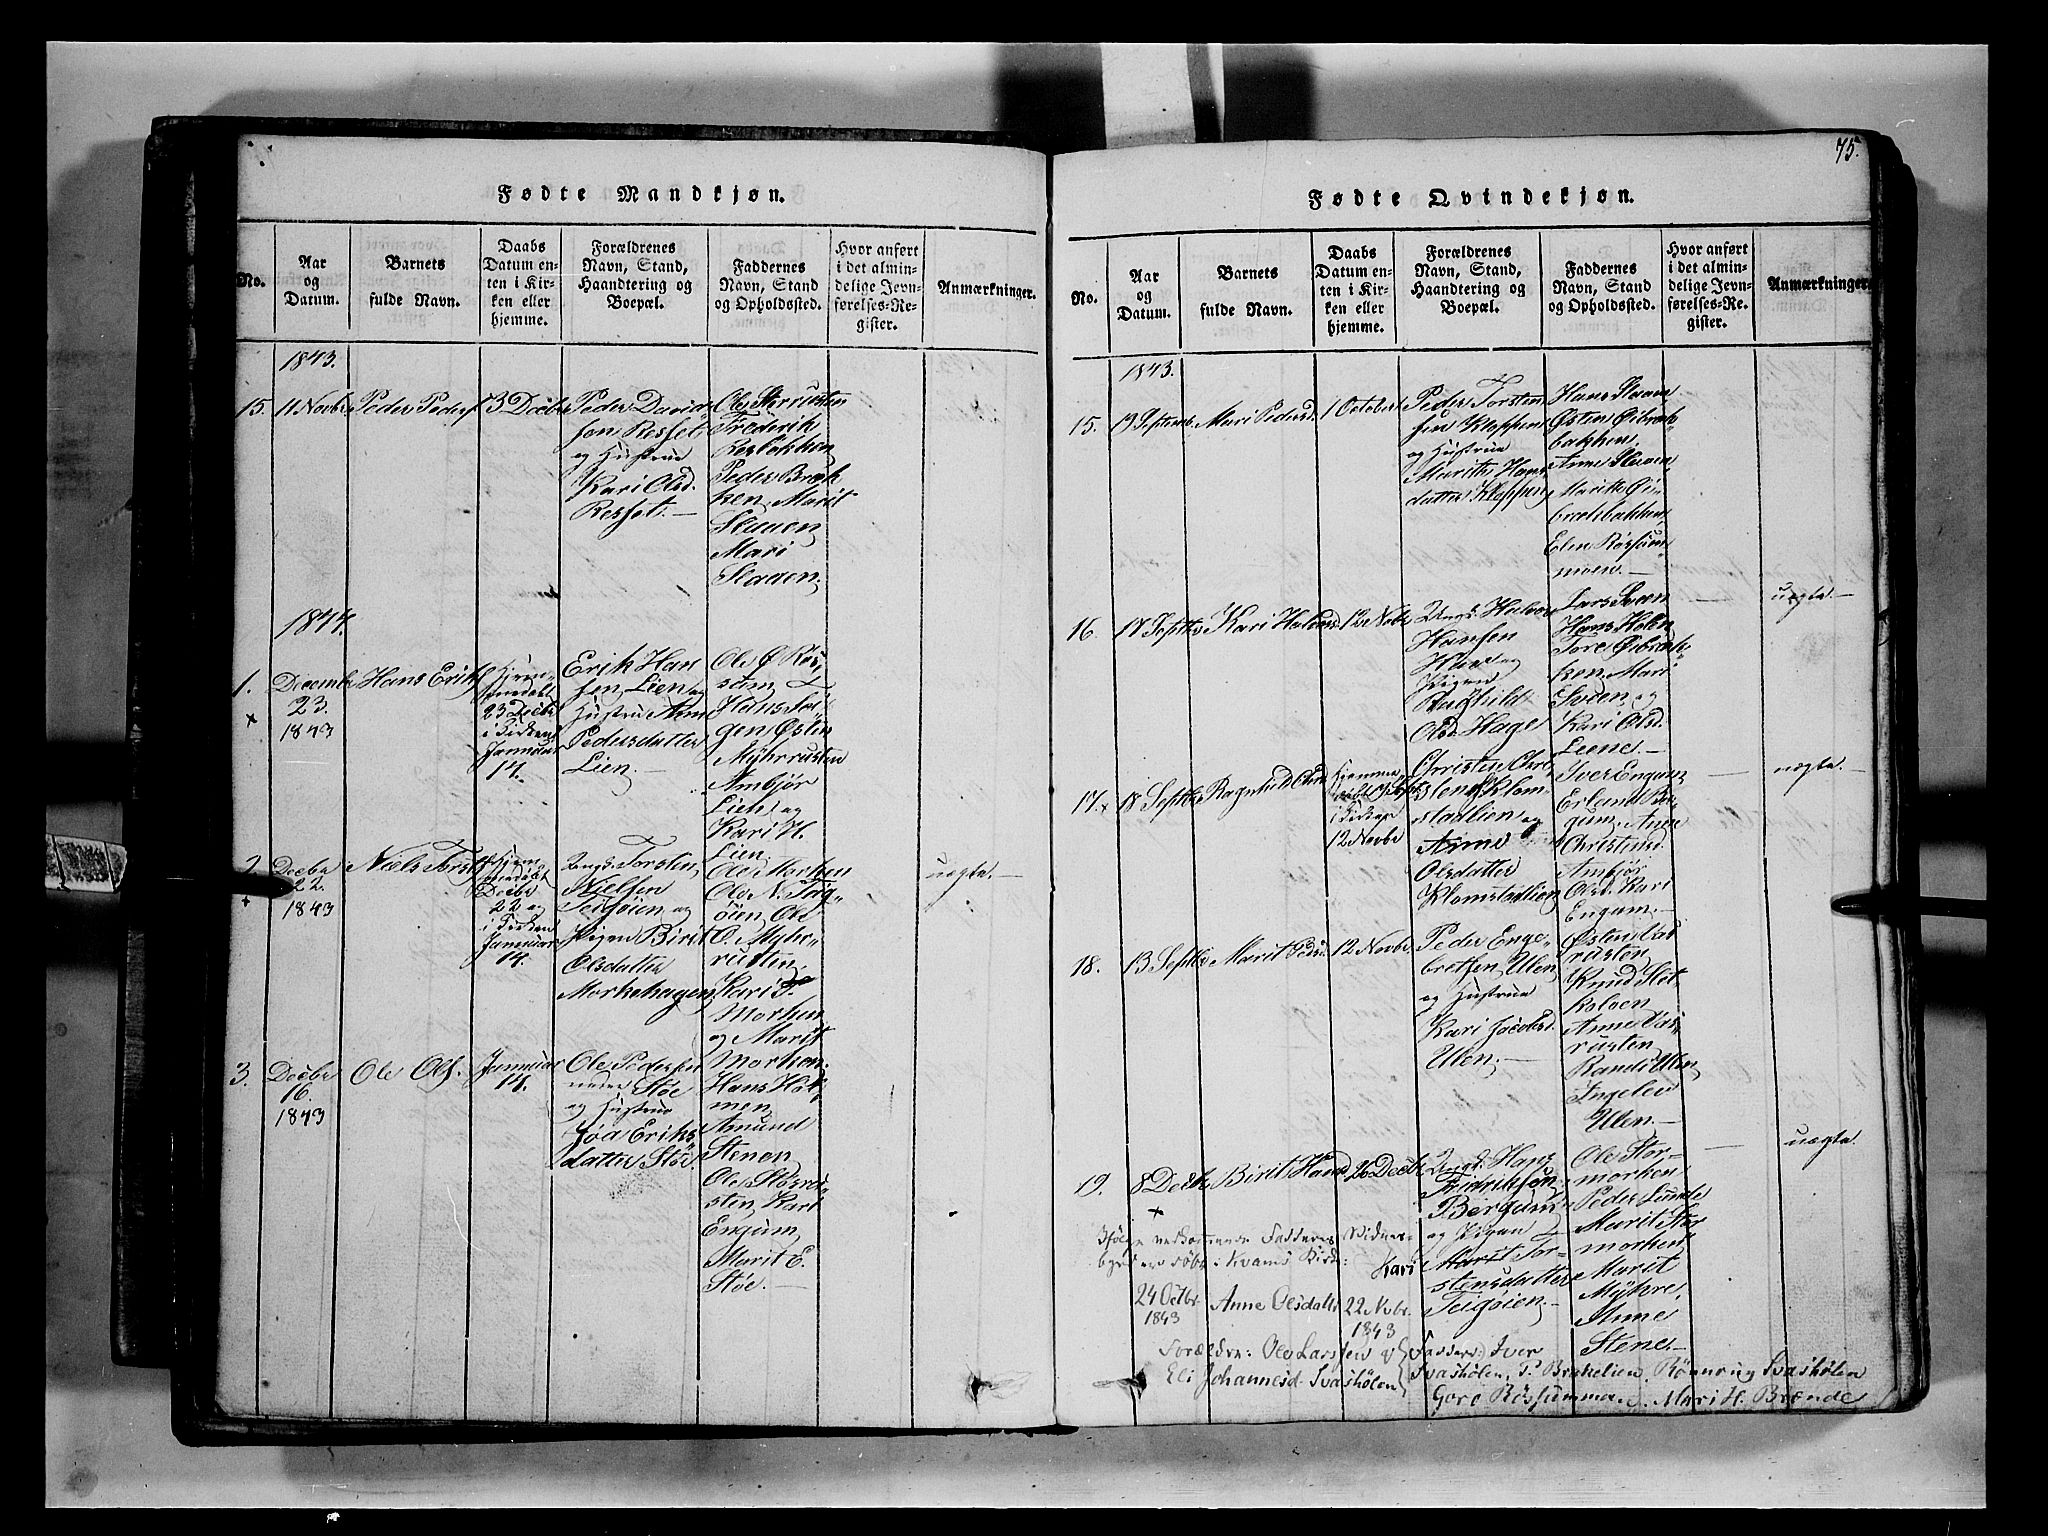 75.
Fødte Mandkjøn.
No.
Aar
og
Datum.
Barnets
fulde Navn.
Daabs
Datum en-
ten i Kir-
ken eller
hjemme.
Forældrenes
Navn, Stand,
Haandtering og
Boepæl.
Faddernes
Navn, Stand
og Opholdssted.
Hvor anført
i det almin-
delige Jevn-
førelses-Re-
gister.
Anmærkninger.
1843.
15.
11 Novbr
Peder Peders
3 Decbr
Peder David-
sen Resset
og Hustrue
Kari Olsd.
Resset.
Ole
Frederik
Peder Bræk
ken, Marit
Slaaen,
Mari
Slaaen.
1844.
1.
Decembr
23.
1843
Hans Eriks
Hjem-
medøbt
23 Decbr
i Kirken
Januar
14.
Erik Han
sen, Lien og
Hustru Ann
Pedersdatter
Lien.
Ole Ø. Ros-
sum,
Hans
gen, Østen
Myhrrusten
Ambjør
Lien, og
Kari H.
Lien.
2.
Decbr
22.
1843
Niels Torst
Hjem-
medøbt
Decbr
22 og
i Kirken
Januar
14.
Ungk. Torsten
Nielsen
Teigøien og
Pigen Birit
Olsdatter
Morkehagen
Ole Morken
Ole N. Teig-
øien, Ole
O. Myhr-
rusten,
Kari T.
Morken
og Marit
Morken.
uægte.
3.
Decbr
16.
1843
Ole Ols.
Januar
14.
Ole Pedersen
nedre Støe
og Hustrue
Jøa Eriks-
datter Støe.
Hans Hol-
men,
Amund
Stenen,
Ole
sten, Kari
Engum,
Marit E.
Støe.
Fødte Qvindekjøn.
No.
Aar
og
Datum.
Barnets
fulde Navn.
Daabs
Datum en-
ten i Kir-
ken eller
hjemme.
Forældrenes
Navn, Stand,
Haandtering og
Boepæl.
Faddernes
Navn, Stand
og Opholdssted.
Hvor anført
i det almin-
delige Jevn-
førelses-Re-
gister.
Anmærkninger.
1843.
15.
19 Septemb.
Mari Pedersd.
1 October
Peder Torsten
sen Kloppen
og Hustrue
Marith Hans
datter Kloppen
Hans Slaaen
Østen Øibræk-
bakken,
Anne Slaaen,
Marith Øi-
brækbakken,
Eden Rossum-
moen.
16.
17 Septbr
Kari Halvorsd
12 Novbr
Ungk. Halvor
Hansen
Hage og
Pigen
Ragnhild
Olsd. Hage
Lars Sveen
Hans Holen
Tore Øibræk-
ken, Mari
Sveen, og
Kari Olsd.
Liene.
uægte.
17.
18 Septbr
Ragnhild Chrd
Hjemme
døbt
i Kirken
12 Novbr
Christen Chri-
stens Klom-
stadlien og
Anne
Olsdatter
Klomstadlien
Iver Engum,
Erland Ber-
gum, Anne
Christensd
Ambjør
Olsd. Kari
Engum.
uægte.
18.
13 Septbr
Marit Pedsd.
12 Novbr
Peder Enge-
bretsen Ulen
og Hustrue
Kari Jacobsd.
Ulen.
Østen Vas-
rusten
Knud Slet-
kolven
Anne Vas-
rusten
Randi Ulen,
Ingelev
Ulen.
19.
8 Decbr
Birit Hansd
26 Decbr
Ungk. Hans
Fredriksen
Bergum
og Pigen
Marit Tor-
stensdatter
Teigøien.
Ole Stor-
morken
Peder Lunde
Marit Stor-
morken
Marit
Myhre,
Anne
Stene.
uægte.
Ifølge vedkommende Fadderes Vidnes-
byrd er døbt i Kvams Kirke:
Kari
24 Octbr.
1843
Anne Olsdatter
22 Novbr.
1843
Forældre: Ole Larssen og
Eli Johannesd. Svashølen
Faddere: Iver
Svashølen, P. Brækelien, Rønnaug Svashølen
Goro Rossummoen. Mari H. Brænde